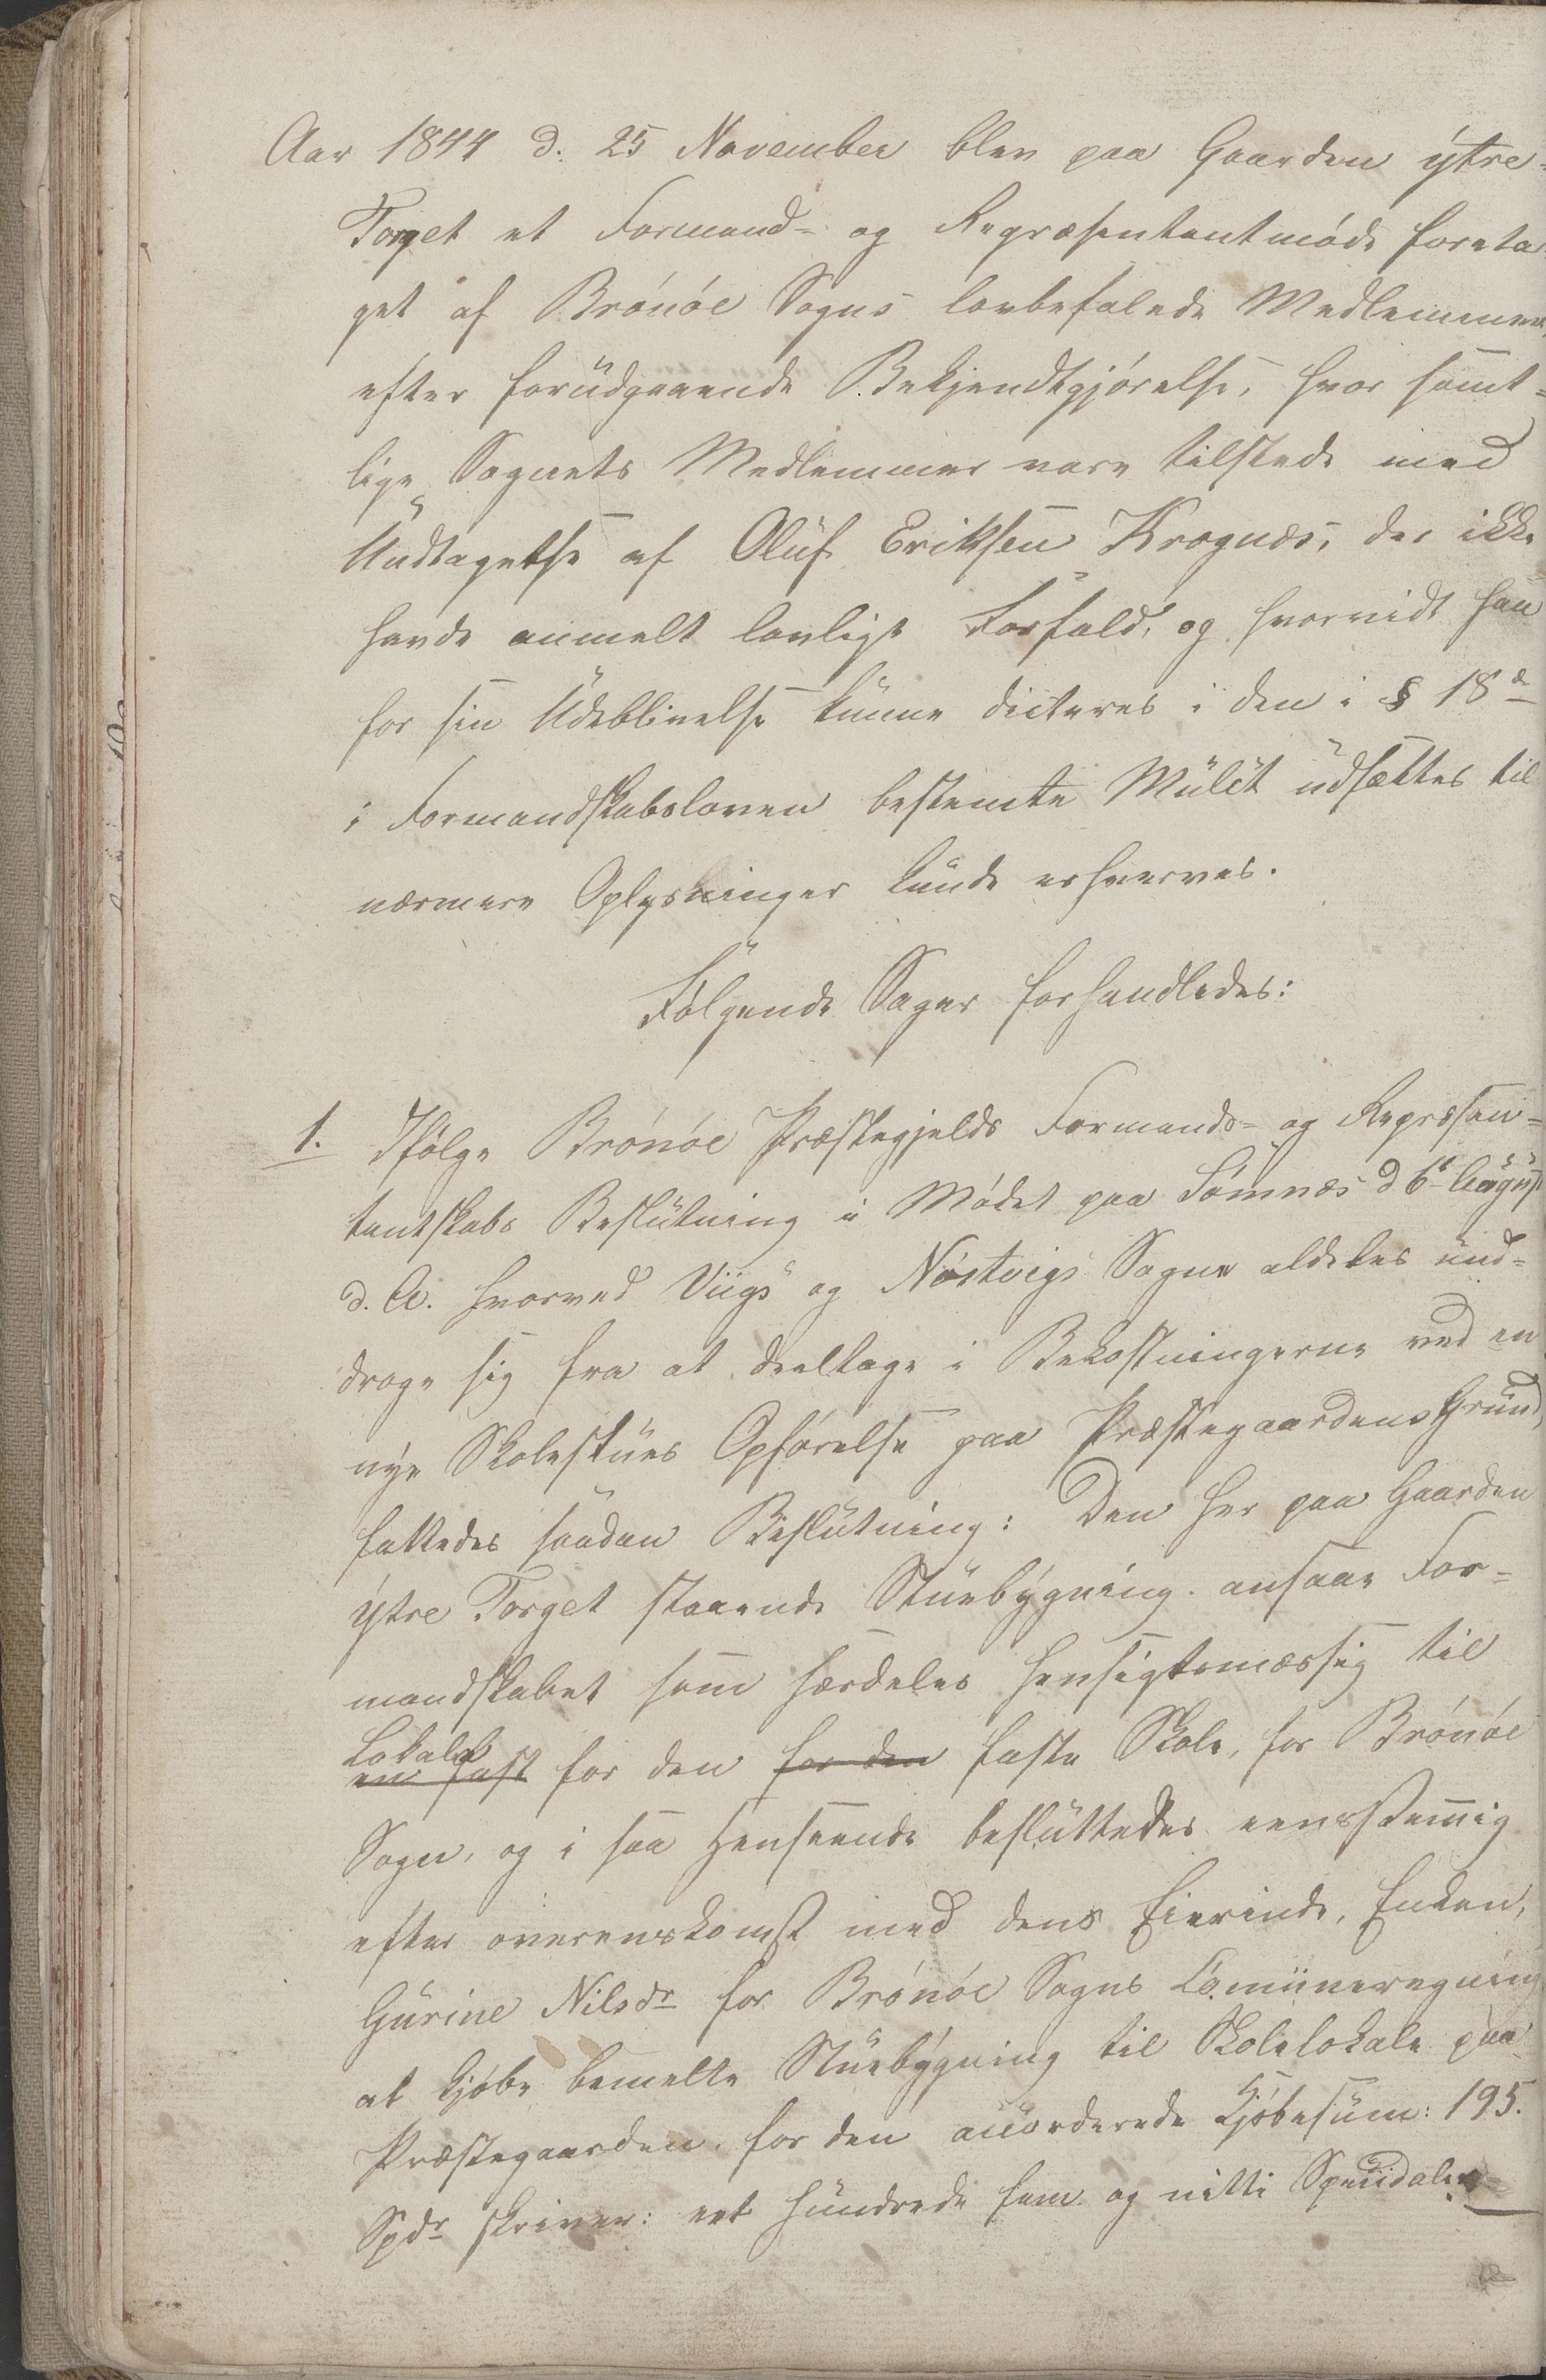 Aar 1844 d. 25 November blev paa Gaarden ytre-
Torget et Formand- og Repræsentantmöde foreta-
get af Brönöe Sogns lovbefalede Medlemmer,
efter forudgaaende Bekjendtgjörelse, hvor samt-
lige Sognets Medlemmer vare tilstede med
Undtagelse af Oluf Eriksen Krognæs, der ikke
havde anmelt lovligt Forfald, og hvorvidt han
for sin Udeblivelse kunne dicteres i den i § 18de
i Formandskabsloven bestemte Mulct udsættes til
nærmere Oplysninger kunde erhverves.
Fölgende Sager forhandledes:
1. Ifölge Brönöe Præstegjelds Formands- og Repræsen-
tantskabs Beslutning i Mödet paa Sömnæs d 6te August
d. A. hvorved Viigs og Nöstvigs Sogne aldeles und-
droge sig fra at deeltage i Bekostningerne ved en
nye Skolestues Opförelse paa Præstegaardens Grund,
fattedes saadan Beslutning: Den her paa Gaarden
ytre Torget staaende Stuebygning ansaae For-
mandskabet som særdeles hensigtsmæssig til
Lokale
en fast for den for den faste Skole, for Brönöe
Sogn, og i saa Henseende besluttedes eensstemig
efter overenskomst med dens Eierinde, Enken,
Gurine Nilsdr for Brönöe Sogns Comuneregning
at kjöbe bemelte Stuebygning til Skolelokale paa
Præstegaarden, for den accorderede Kjöbesum: 195.
Spdr skriver: eet hundrede fem og nitti Speciedaler